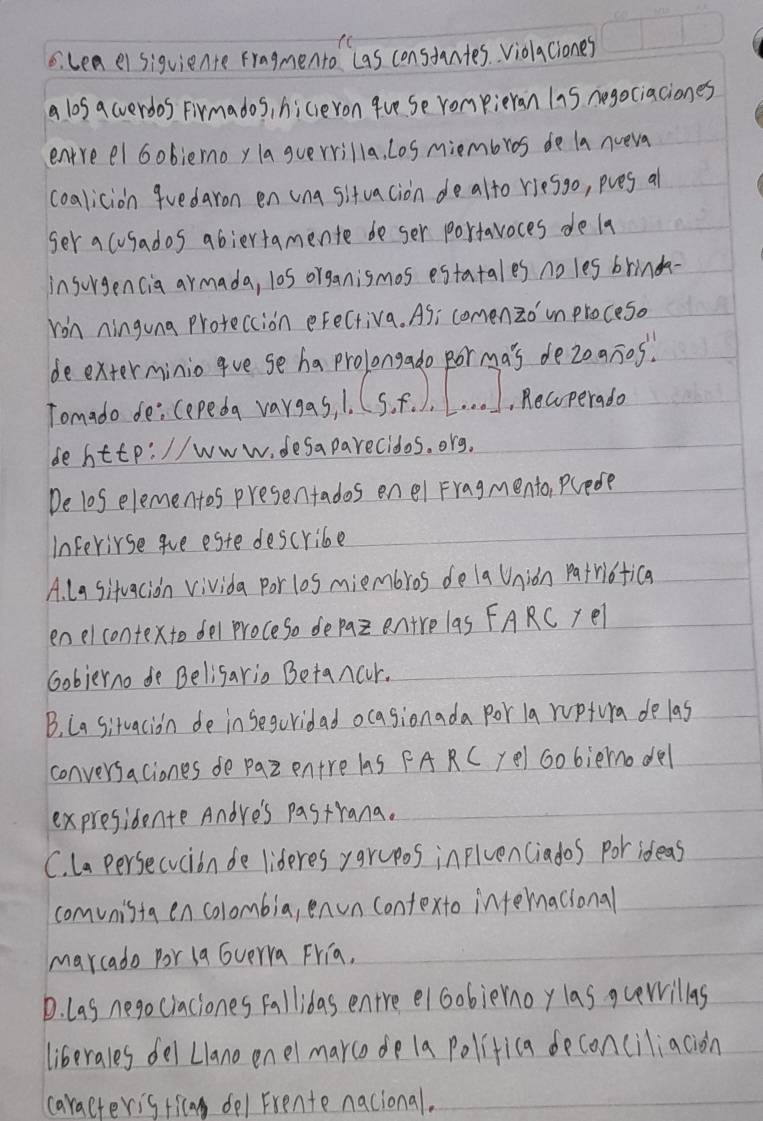 6. Lea el siguiente Fragmento "Las constantes violaciones
a los acuerdos Firmados, hicieron que se rompieran las negociaciones
entre el Gobierno y la guerrilla. Los miembros de la nueva
coalición quedaron en una situación de alto riesgo, pues al
ser acusados abiertamente de ser portavoces de la
insurgencia armada, los organismos estatales no les brinda-
rón ninguna Protección efectiva. Así comenzó un proceso
de exterminio que se ha prolongado por más de 20 años".
Tomado de: Cepeda vargas, I. (s.f.). [...]. Recuperado
de http://www.desaparecidos.org.
De los elementos presentados en el Fragmento, Puede
Inferirse que este describe
A. La situación vivida Por los miembros de la Unión Patriótica
en el contexto del Proceso de paz entre las FARC y el
Gobierno de Belisario Betancur.
B. La situación de inseguridad ocasionada por la ruptura de las
conversaciones de paz entre las FARC y el Gobierno del
expresidente Andre's pastrana.
C. La Persecución de lideres y grupos influenciados Por ideas
comunista en colombia, en un contexto internacional
marcado por la Guerra Fría.
D. Las negociaciones Fallidas entre el Gobierno y las guerrillas
liberales del Llano en el marco de la Política de conciliación
características del Frente nacional.